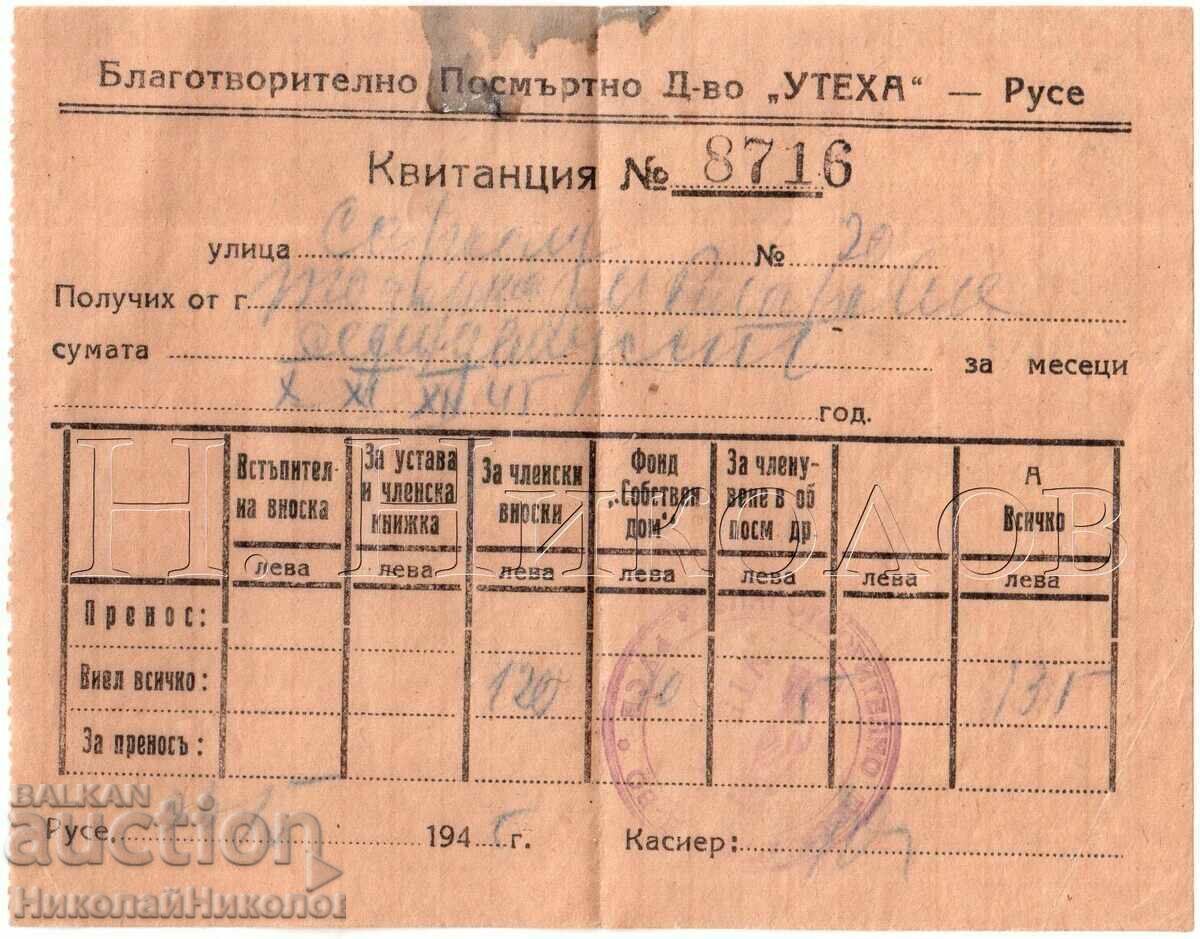 Благотворително Посмъртно Д-во „УТЕХА“ — Русе
Квитанция № 8716
улица № 20
Получих от г
сумата за месеци
X XI XII 45 год.
Встъпител-на вноска За устава и членска книжка За членски вноски Фонд „Собствен дом“ За члену-вене в об посм др А Всичко
лева лева лева лева лева лева лева
Пренос:
Внел всичко: 120 10 5 135
За преносъ:
Русе, 1945 г. Касиер:
Н. Николов
BALKAN
auction
НиколайНиколов